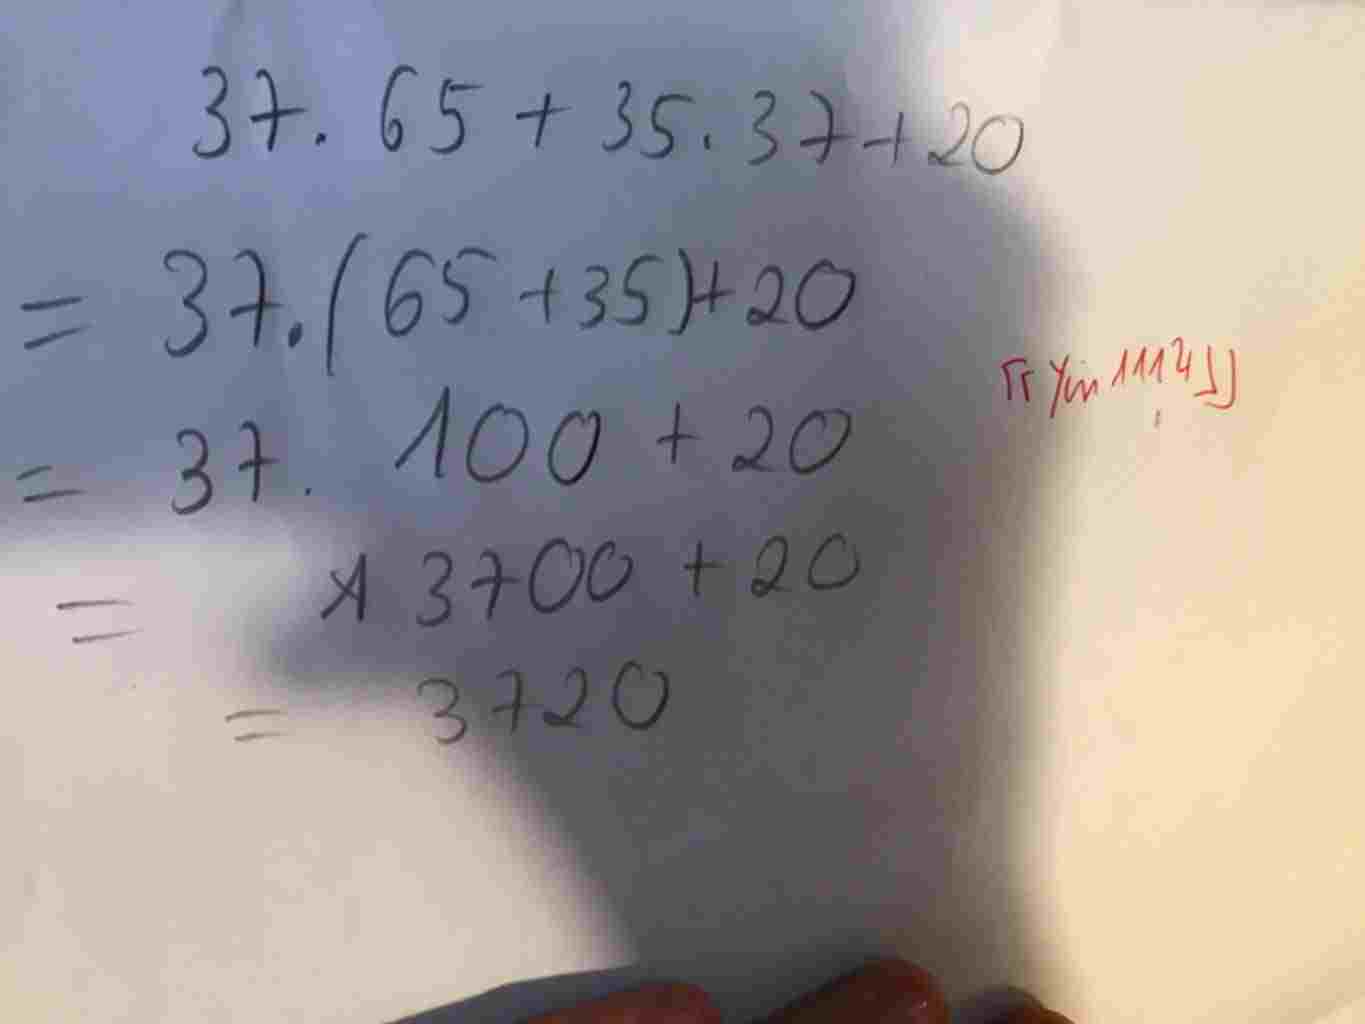 37. 65 + 35. 37 + 20
= 37. (65 + 35) + 20
= 37. 100 + 20
= 3700 + 20
= 3720